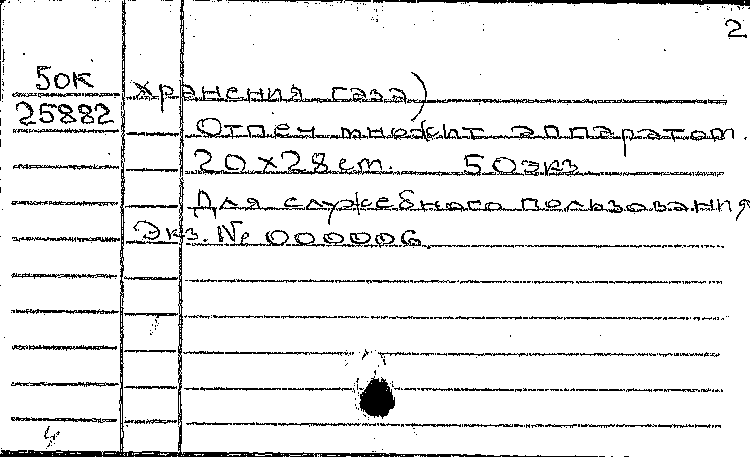 2
50к
25882
хранения газа)
Отпеч множит аппаратом.
20×28 cm. 50 экз
Для служебного пользования
Экз. № 000006